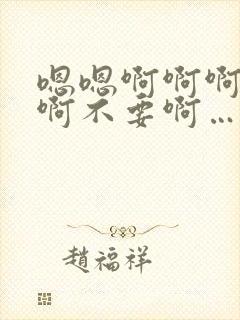 嗯嗯啊啊啊
啊不要啊…
趙福祥